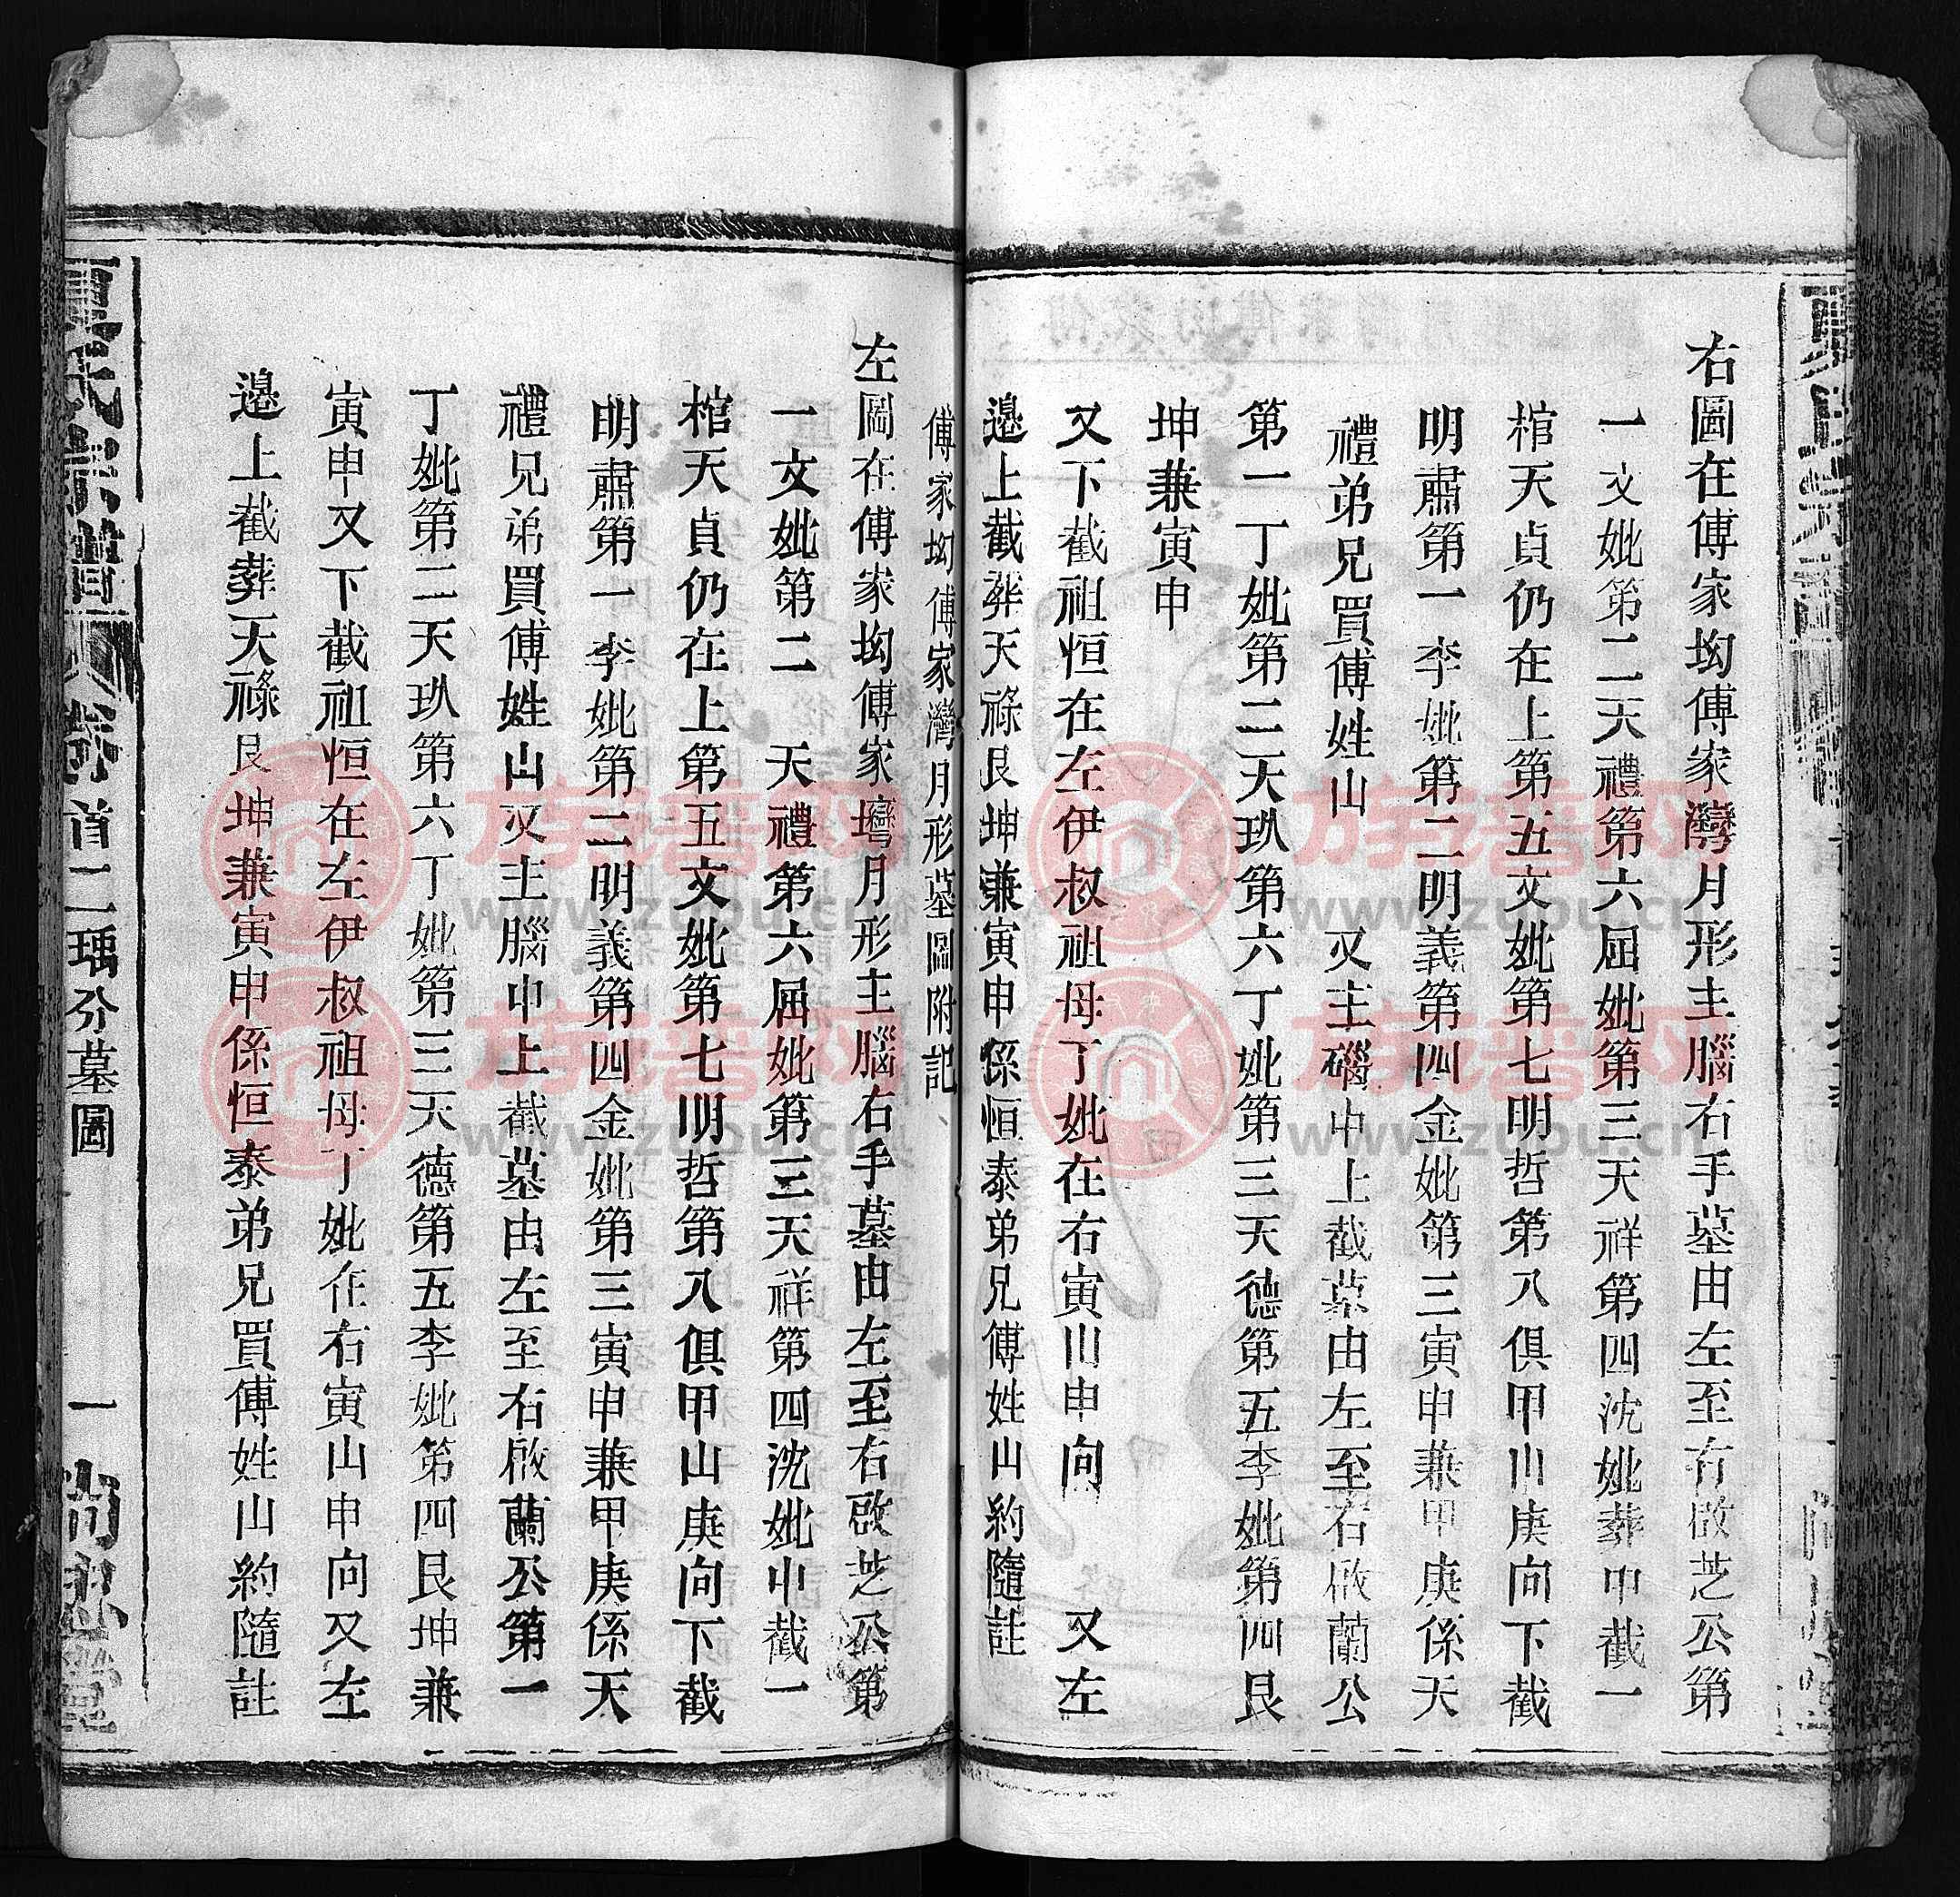 右圖在傅家坳傅家灣月形主腦右手墓由左至右啟芝公第
一文妣第二天禮第六屈妣第三天祥第四沈妣葬中截一
棺天貞仍在上第五文妣第七明哲第八俱甲山庚向下截
明肅第一李妣第二明義第四金妣第三寅申兼甲庚係天
禮弟兄買傅姓山 又主腦中上截墓由左至右啟蘭公
第一丁妣第二天玖第六丁妣第三天德第五李妣第四艮
坤兼寅申
又下截祖恒在左伊叔祖母丁妣在右寅山申向 又左
邉上截葬天祿艮坤兼寅申係恒泰弟兄傅姓山約隨註
傅家坳傅家灣月形墓圖附記
左圖在傅家坳傅家塆月形主腦右手墓由左至右啟芝公第
一文妣第二 天禮第六屈妣第三天祥第四沈妣中截一
棺天貞仍在上第五文妣第七明哲第八俱甲山庚向下截
明肅第一李妣第二明義第四金妣第三寅申兼甲庚係天
禮兄弟買傅姓山又主腦中上截墓由左至右啟蘭公第一
丁妣第二天玖第六丁妣第三天德第五李妣第四艮坤兼
寅申又下截祖恒在左伊叔祖母丁妣在右寅山申向又左
邉上截葬天祿艮坤兼寅申係恒泰弟兄買傅姓山約隨註
氏宗譜 卷首二瑀分墓圖 一 尚忠堂
族譜网
www.zupu.cn
族譜网
www.zupu.cn
族譜网
www.zupu.cn
族譜网
www.zupu.cn